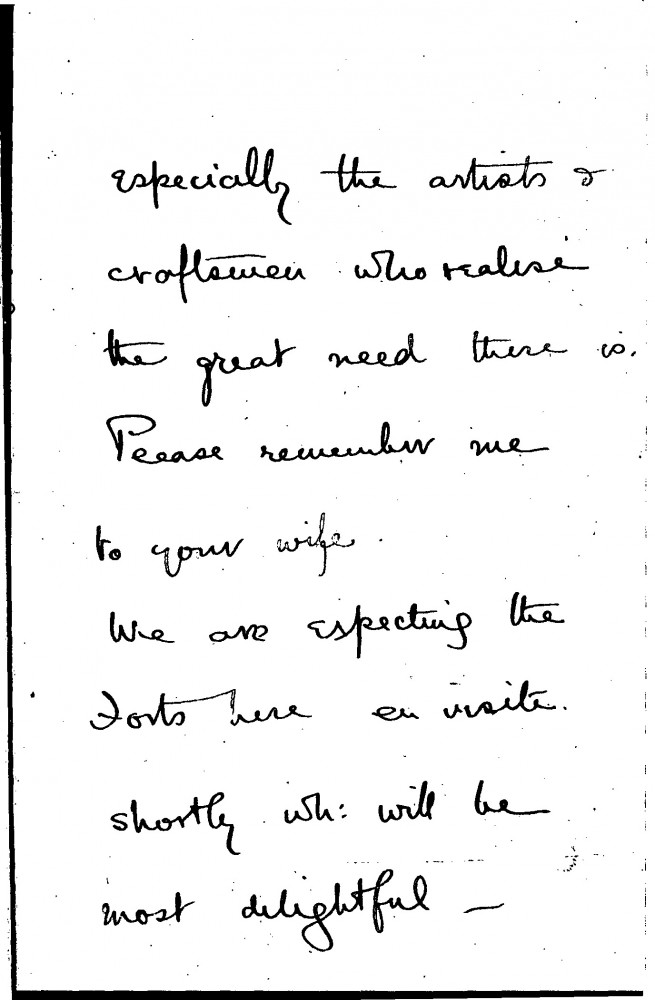 especially the artists &
craftsmen who realise
the great need there is.
Please remember me
to your wife.
We are expecting the
here en visite.
shortly wh: will be
most delightful —